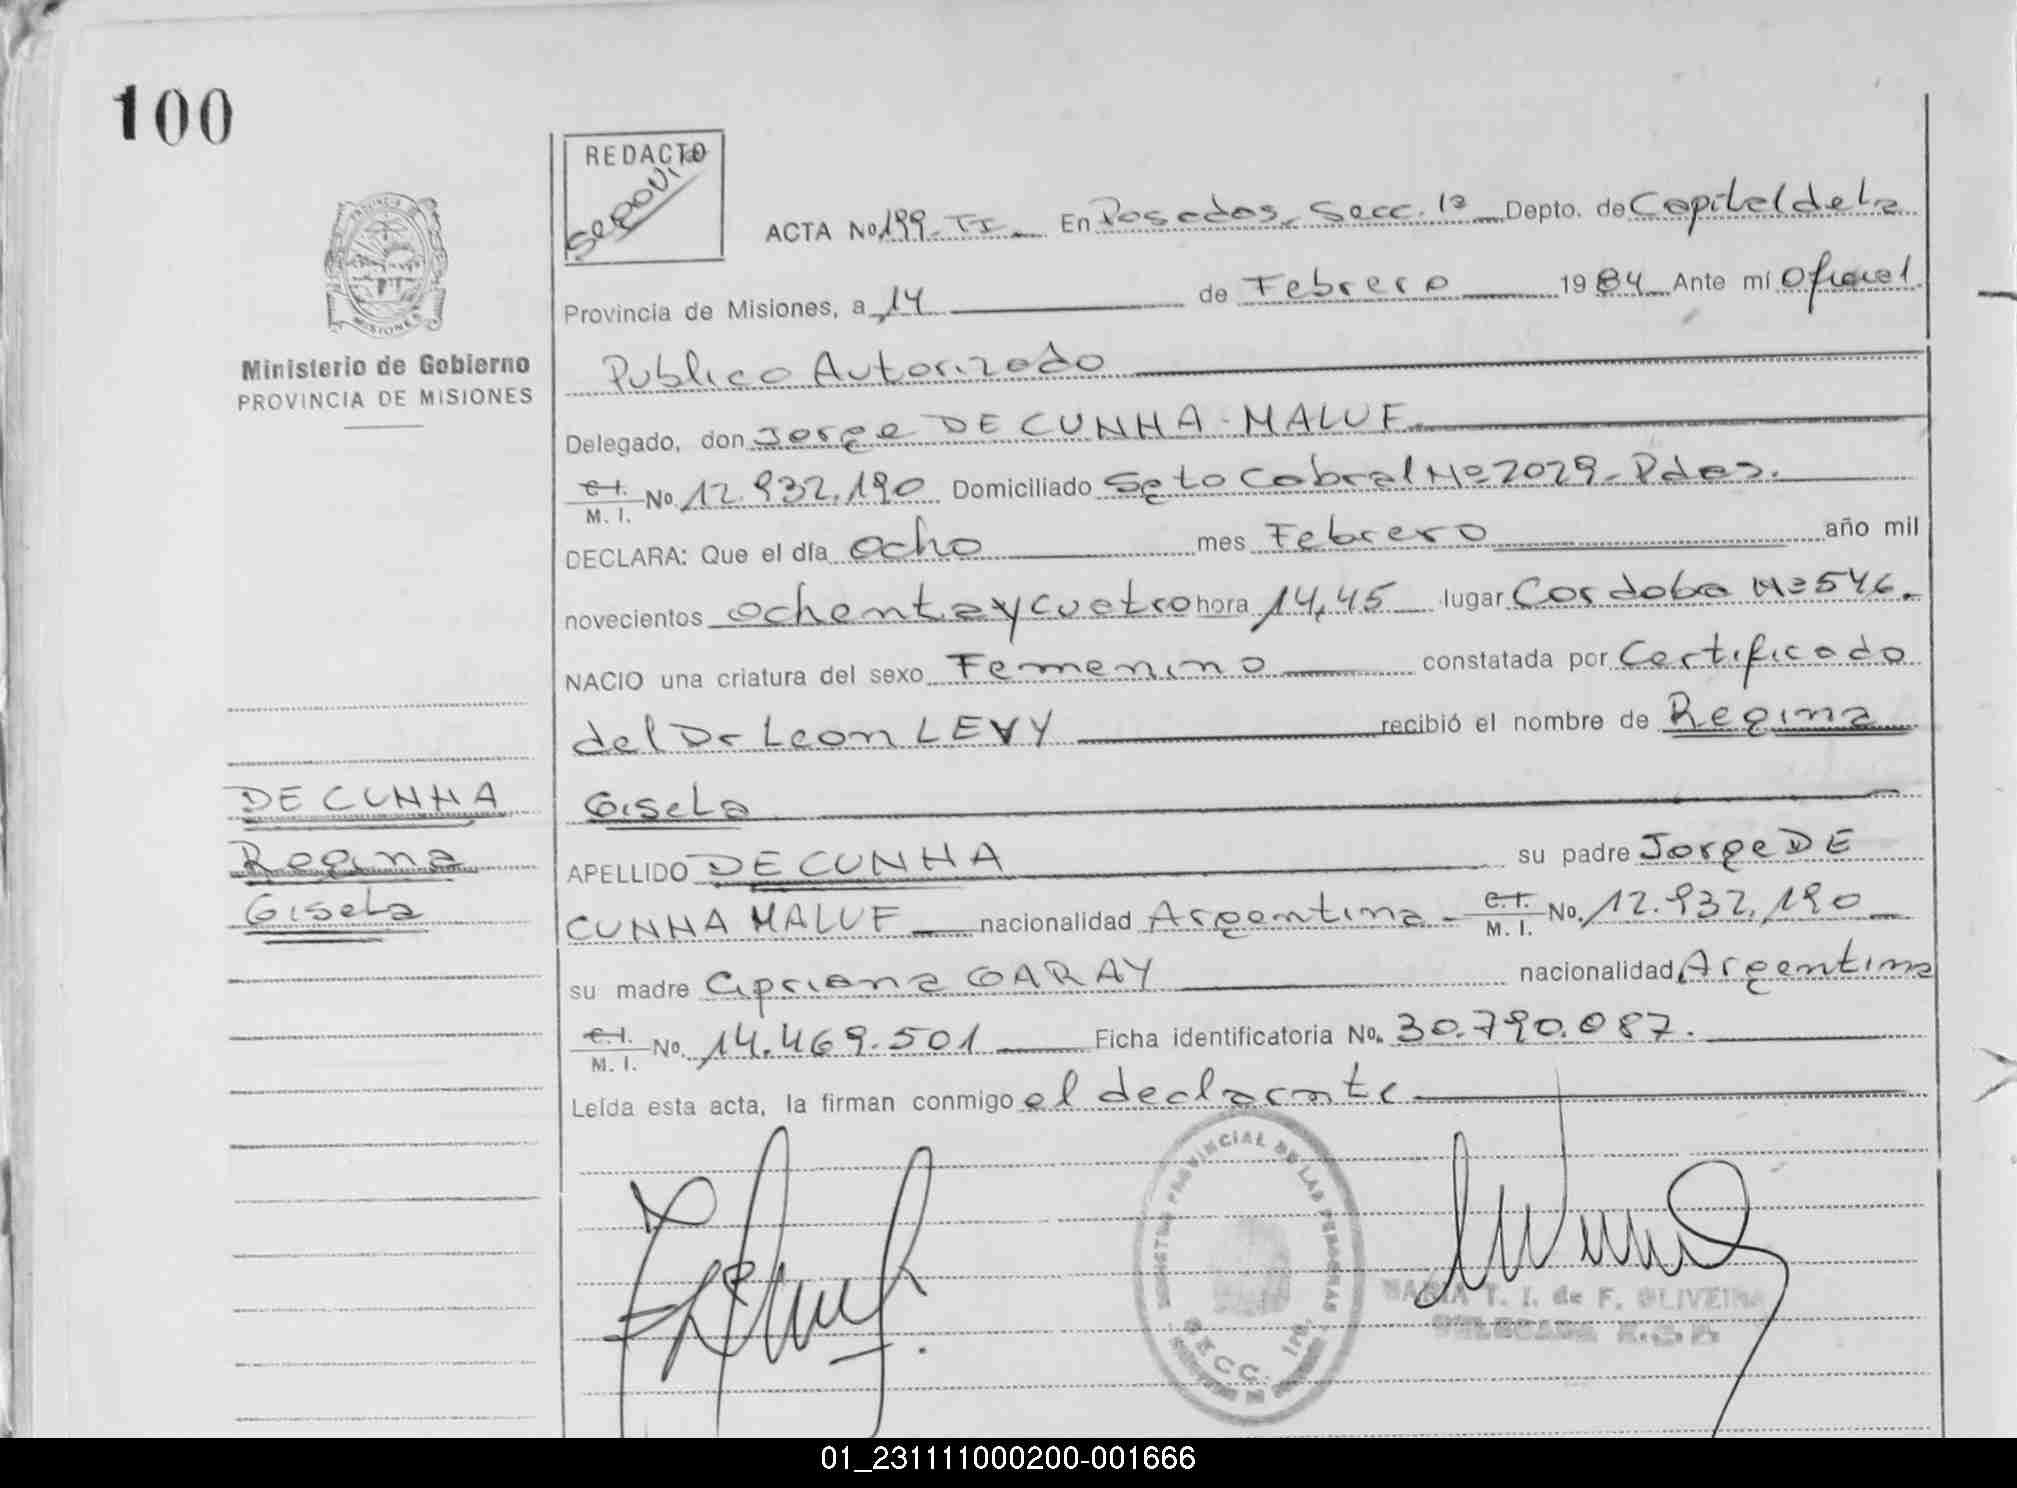 100
REDACTO
Segovia
PROVINCIA DE
MISIONES
Ministerio de Gobierno
PROVINCIA DE MISIONES
ACTA No 199-TI- En Posadas, Secc. 1ª Depto. de Capital de la
Provincia de Misiones, a 14 de Febrero 1984 Ante mí Oficial
Publico Autorizado
Delegado, don Jorge DE CUNHA-MALUF
C.I. M. I. No 12.932.190 Domiciliado Sgto Cabral Nº 2029-Pdas.
DECLARA: Que el día ocho mes Febrero año mil
novecientos ochenta y cuatro hora 14,45 lugar Cordoba Nº 546.
NACIO una criatura del sexo Femenino constatada por Certificado
del Dr Leon LEVY recibió el nombre de Regina
Gisela
DE CUNHA
Regina
Gisela
APELLIDO DE CUNHA su padre Jorge DE
CUNHA MALUF nacionalidad Argentina - C.I. M. I. No. 12.932.190
su madre Cipriana GARAY nacionalidad Argentina
C.I. M. I. No. 14.469.501 Ficha identificatoria No. 30.790.087.
Leída esta acta, la firman conmigo el declarante
REGISTRO PROVINCIAL DE LAS PERSONAS
SECC. 1ra.
MARIA T. I. de F. OLIVEIRA
DELEGADA R.C.P.
01_231111000200-001666